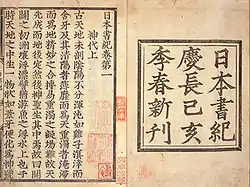 日本書紀
慶長己亥
季春新刊
日本書紀卷第一
神代上
古天地未剖陰陽不分渾沌如雞子溟涬而
含牙及其清陽者薄靡而爲天重濁者淹滯
而爲地精妙之合搏易重濁之凝竭難故天
先成而地後定然後神聖生其中焉故曰開
闢之初洲壤浮漂譬猶游魚之浮水上也于
時天地之中生一物狀如葦牙便化爲神